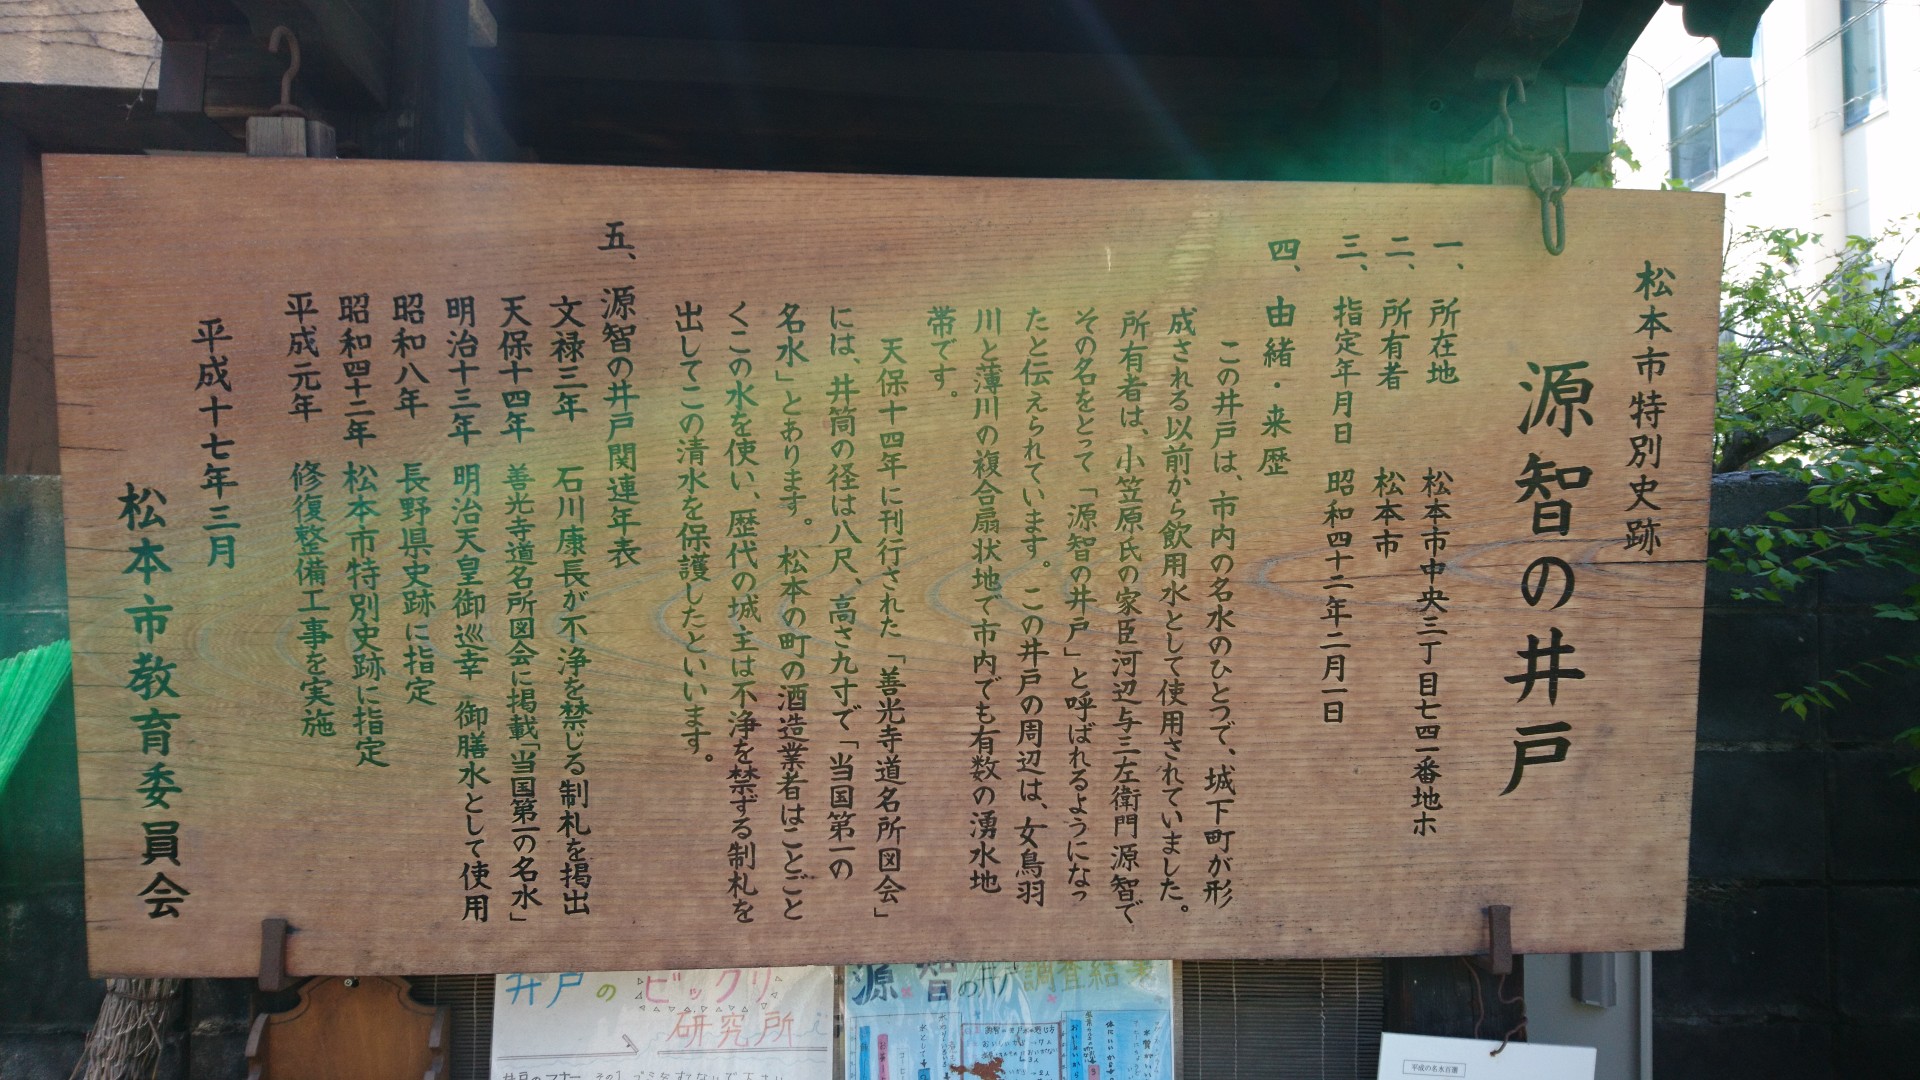 松本市特別史跡
源智の井戸
一、所在地 松本市中央三丁目七四一番地ホ
二、所有者 松本市
三、指定年月日 昭和四十二年二月一日
四、由緒・来歴
この井戸は、市内の名水のひとつで、城下町が形
成される以前から飲用水として使用されていました。
所有者は、小笠原氏の家臣河辺与三左衛門源智で
その名をとって「源智の井戸」と呼ばれるようになっ
たと伝えられています。この井戸の周辺は、女鳥羽
川と薄川の複合扇状地で市内でも有数の湧水地
帯です。
天保十四年に刊行された「善光寺道名所図会」
には、井筒の径は八尺、高さ九寸で「当国第一の
名水」とあります。松本の町の酒造業者はことごと
くこの水を使い、歴代の城主は不浄を禁ずる制札を
出してこの清水を保護したといいます。
五、源智の井戸関連年表
文禄三年 石川康長が不浄を禁じる制札を掲出
天保十四年 善光寺道名所図会に掲載「当国第一の名水」
明治十三年 明治天皇御巡幸 御膳水として使用
昭和八年 長野県史跡に指定
昭和四十二年 松本市特別史跡に指定
平成元年 修復整備工事を実施
平成十七年三月
松本市教育委員会
井戸のビックリ
研究所
源智の井戸調査結果
平成の名水百選